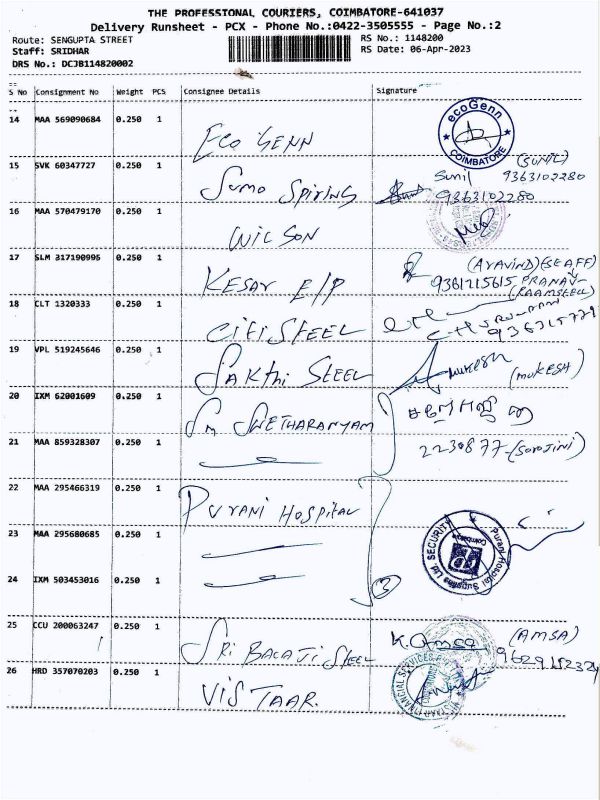 THE PROFESSIONAL COURIERS, COIMBATORE-641037
Delivery Runsheet - PCX - Phone No.:0422-3505555 - Page No.:2
Route: SENGUPTA STREET RS No.: 1148200
Staff: SRIDHAR RS Date: 06-Apr-2023
DRS No.: DCJB114820002
S No Consignment No Weight PCS Consignee Details Signature
14 MAA 569090684 0.250 1 ECO GENN ecoGenn COIMBATORE
15 SVK 60347727 0.250 1 Sumo Spirings Sunil (SUNIL) 9363102280
9363102280
16 MAA 570479170 0.250 1 WILSON
17 SLM 317190995 0.250 1 KESAV E/P (ARAVIND) (STAFF)
9361215615 PRANAV
18 CLT 1320333 0.250 1 CITI STEEL (RAAMSTEEL)
19 VPL 519245646 0.250 1 SAKthi STEEL MUKESH (MUKESH)
20 IXM 62001609 0.250 1 Sm SWETHARANYAM
21 MAA 859328307 0.250 1 2230877-(Sorojini)
22 MAA 295466319 0.250 1 PURANI HOSPITAL
23 MAA 295680685 0.250 1 Purani Hospital Supplies Ltd. SECURITY Coimbatore
24 IXM 503453016 0.250 1 3
25 CCU 200063247 0.250 1 SRI BALAJI STEEL K. Amsa (AMSA)
26 HRD 357070203 0.250 1 VISTAAR. VISTAAR FINANCIAL SERVICES